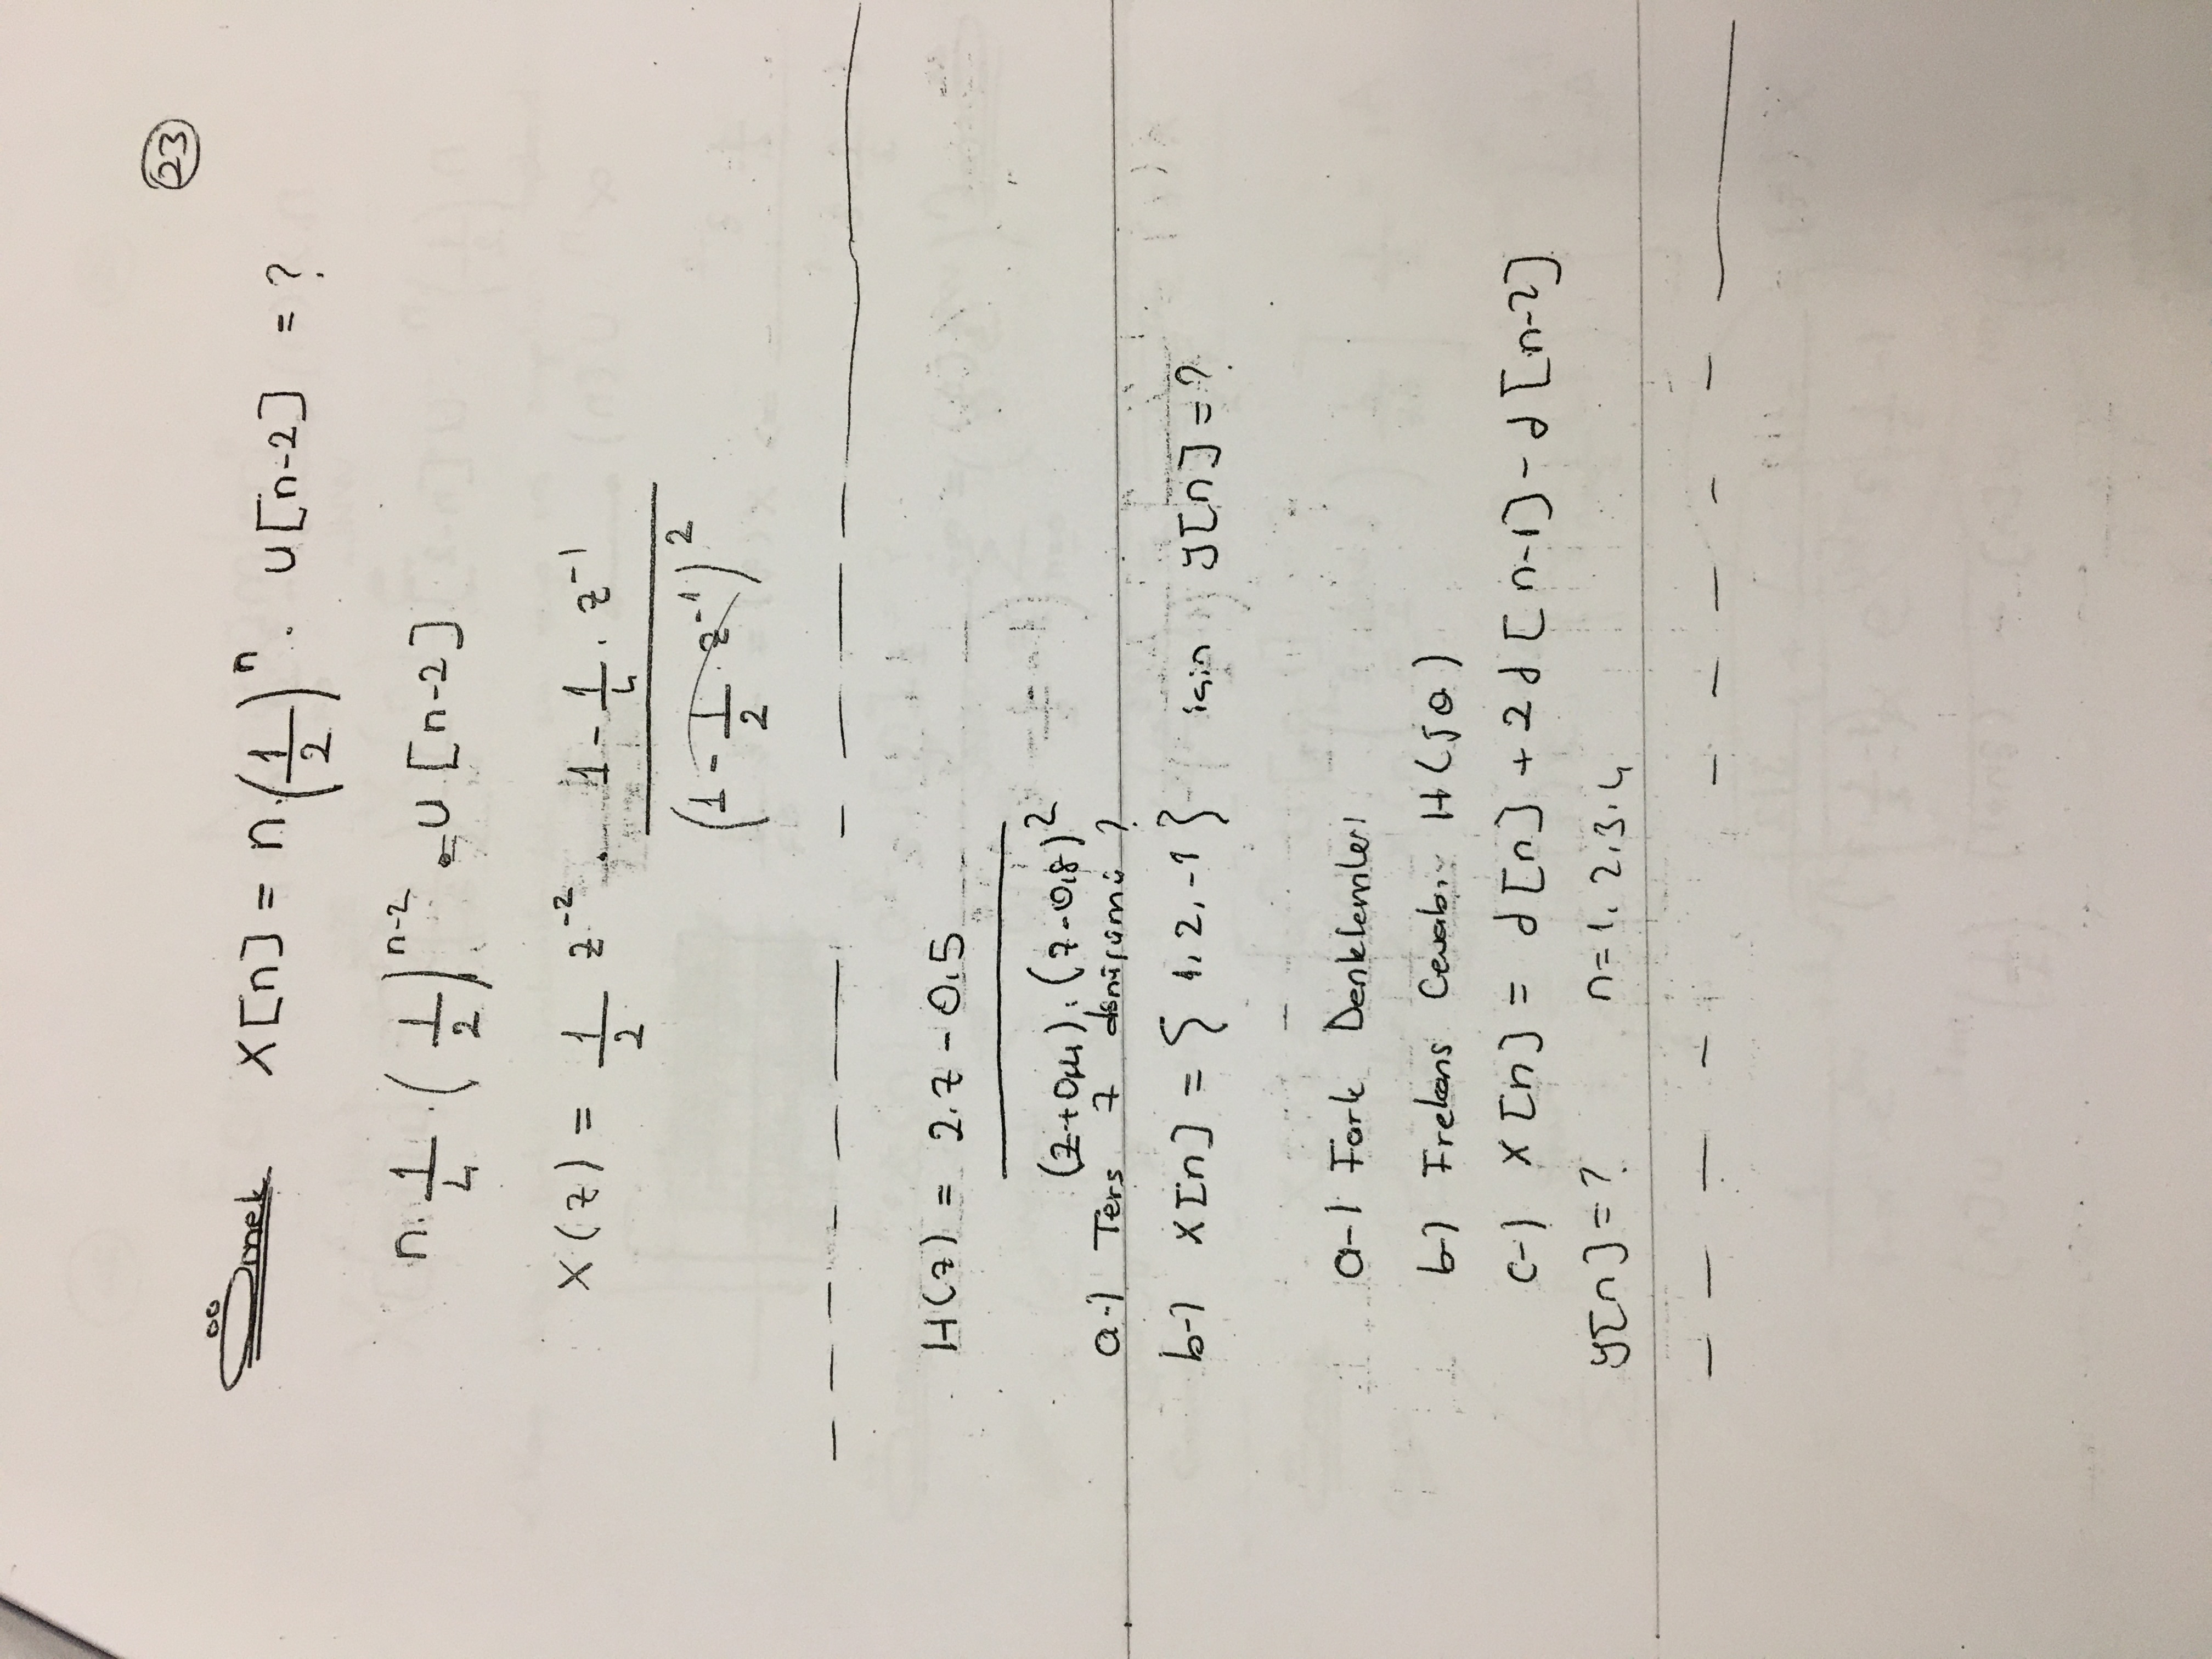 23
Örnek X[n] = n.(1/2)^n . U[n-2] = ?
n. 1/4 . (1/2)^n-2 . U[n-2]
X(z) = 1/2 z^-2 . (1 - 1/4 . z^-1) / (1 - 1/2 . z^-1)^2
H(z) = (2.z - 0.5) / ((z+0,4).(z-0,8)^2)
a-) Ters z dönüşümü ?
b-) X[n] = { 1, 2, -1 } için y[n] = ?
a-) Fark Denklemleri
b-) Frekans Cevabı H(jθ)
c-) X[n] = d[n] + 2d[n-1] - d[n-2]
y[n] = ? n = 1, 2, 3, 4